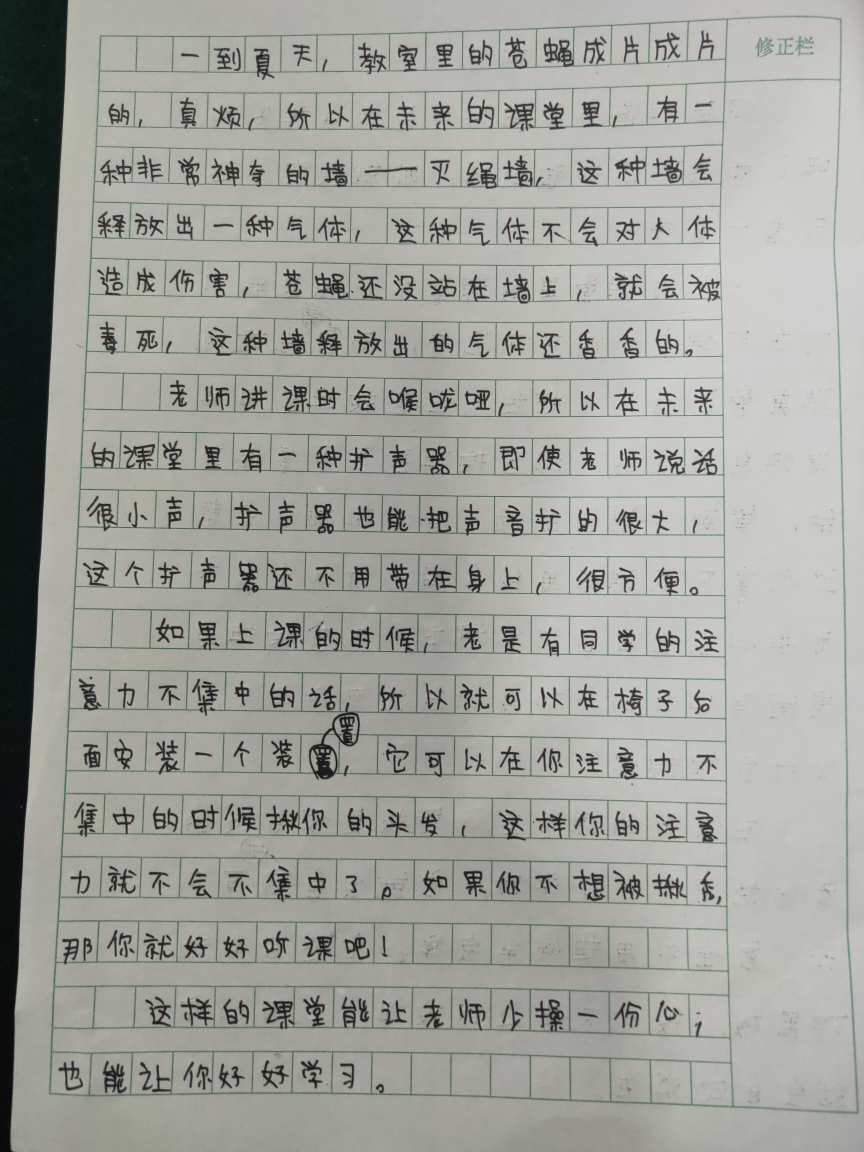 修正栏
一到夏天，教室里的苍蝇成片成片
的，真烦，所以在未来的课堂里，有一
种非常神奇的墙——灭绳墙，这种墙会
释放出一种气体，这种气体不会对人体
造成伤害，苍蝇还没站在墙上，就会被
毒死，这种墙释放出的气体还香香的。
老师讲课时会喉咙哑，所以在未来
的课堂里有一种护声器，即使老师说话
很小声，护声器也能把声音护的很大，
这个护声器还不用带在身上，很方便。
如果上课的时候，老是有同学的注
意力不集中的话，所以就可以在椅子后
面安装一个装置，它可以在你注意力不
集中的时候揪你的头发，这样你的注意
力就不会不集中了。如果你不想被揪秃，
那你就好好听课吧！
这样的课堂能让老师少操一份心；
也能让你好好学习。